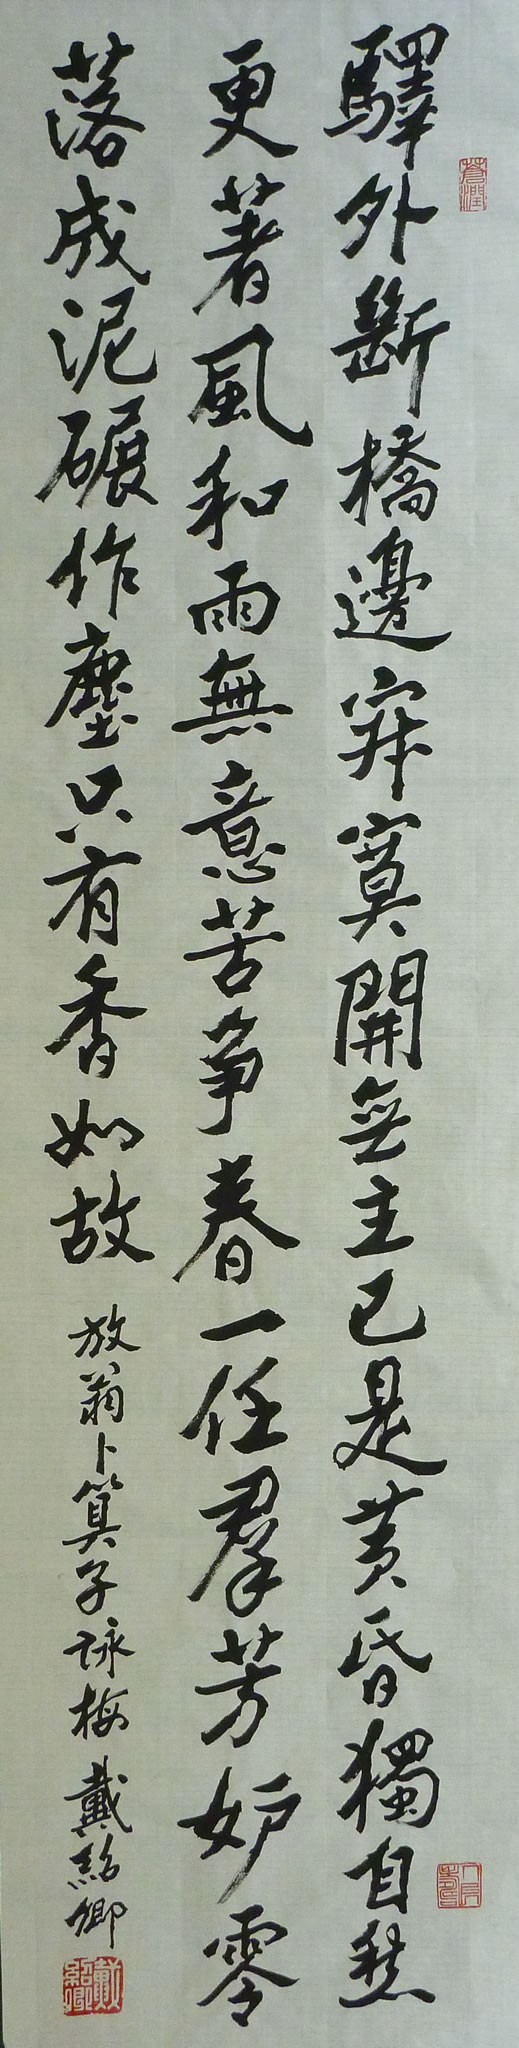 驛外斷橋邊寂寞開無主已是黃昏獨自愁
更著風和雨無意苦爭春一任羣芳妒零
落成泥碾作塵只有香如故
放翁卜算子詠梅 戴紹卿
戴紹卿